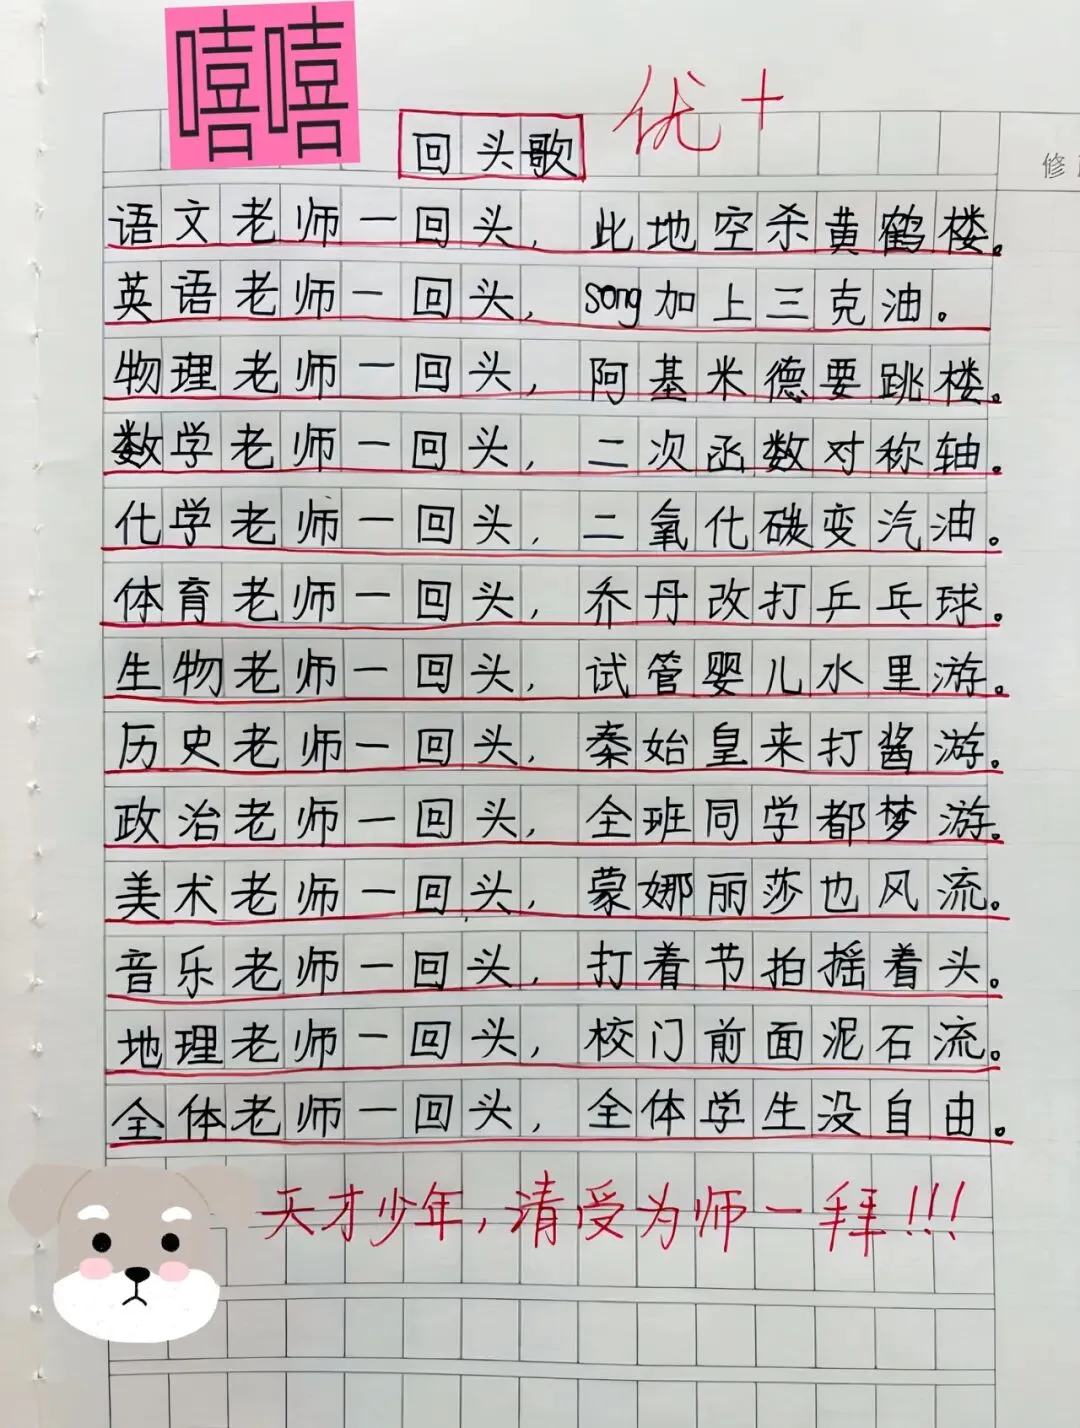 嘻嘻
优+
回头歌
修
语文老师一回头，此地空杀黄鹤楼。
英语老师一回头，song加上三克油。
物理老师一回头，阿基米德要跳楼。
数学老师一回头，二次函数对称轴。
化学老师一回头，二氧化碳变汽油。
体育老师一回头，乔丹改打乒乓球。
生物老师一回头，试管婴儿水里游。
历史老师一回头，秦始皇来打酱游。
政治老师一回头，全班同学都梦游。
美术老师一回头，蒙娜丽莎也风流。
音乐老师一回头，打着节拍摇着头。
地理老师一回头，校门前面泥石流。
全体老师一回头，全体学生没自由。
天才少年，请受为师一拜!!!